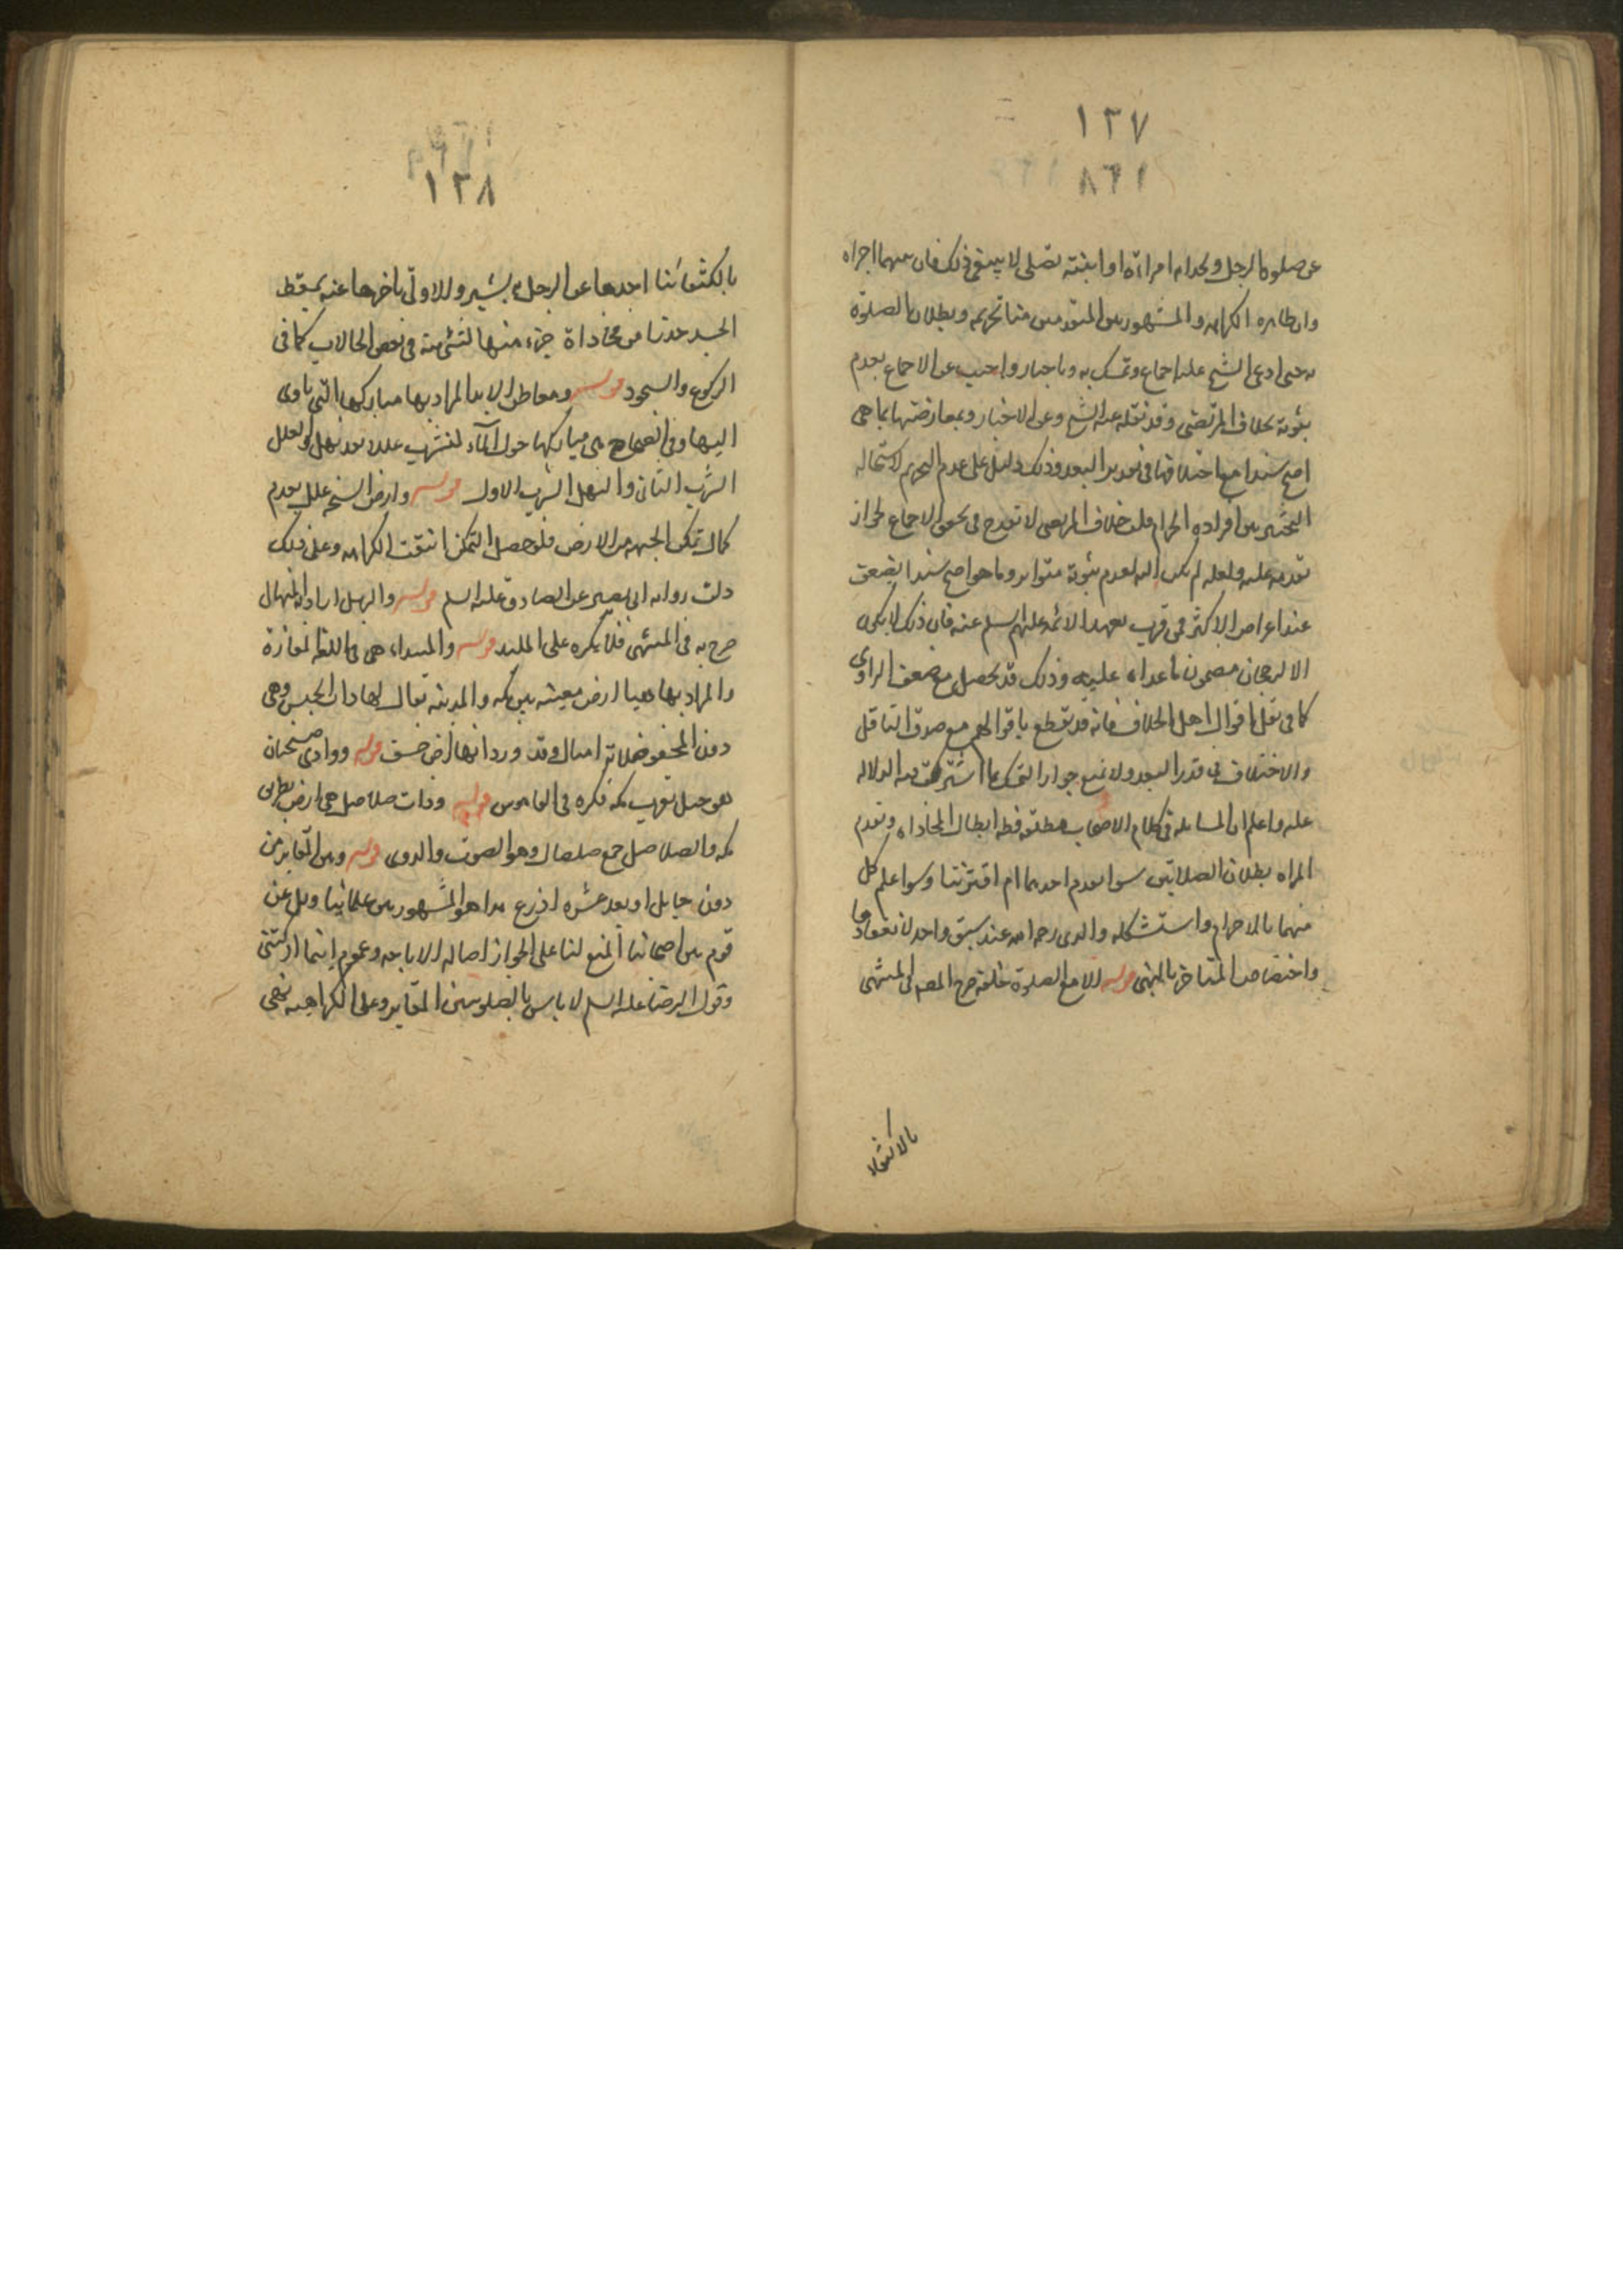 ١٣٧
١٦٨
عن صلوه الرجل وبحذاه امراته او ابنته تصلى لا ينبغى ذلك فان بينهما اجزاه
وان ظاهره الكراهه والمشهور بين المتقدمين منا تحريمه وبطلان الصلوة
به حتى ادعى الشيخ عليه اجماع وتمسك به وباخبار واجيب عن الاجماع بعدم
ثبوته بخلاف المرتضى وقد نقله عنه الشيخ وعن الاخبار وبمعارضتها بما هى
اصح سندا مع اختلافها فى تقدير البعد وذلك دليل على عدم التحريم لاستحاله
التخيير بين افراده الحرام قلت خلاف المرتضى لا تقدح فى تحقق الاجماع لجواز
تقدمه عليه ولعله لم يكن اليه لعدم ثبوته متواتر وما هو اصح سندا يضعف
عند اعراض الاكثر فى قرب عهد الائمه عليهم السلم عنه فان ذلك لا يكون
الا لرجحان مضمون ما عداه عليه وذلك قد يحصل مع ضعف الراوى
كما فى نقل اقوال اهل الخلاف فانه قد يقطع باقوالهم مع صدق الناقل
والاختلاف فى قدر البعد ولا تمنع جواز التمسك بما اشتركت فيه الدلاله
عليه واعلم ان المسئله فى كلام الاصحاب مطلقه فظ ابطال المحاذاه وتقدم
المراه بطلان الصلاتين سوا تقدم احدهما ام اقترنتا وسوا علم كل
منهما بالاحرام واستشكله والدى رحمه الله عند سبق واحد لانعقادها
واختصاص المتاخر بالنهى قوله الا مع الصلوة خلفه صرح المصـ فى المنتهى
بالاكتفاء
١٣٨
بالاكتفائنا احدها عن الرجل بشبر وللاولى تاخرها عنه بمسقط
الجسد حذرا من محاذاة جزء منها لشئ منه فى بعض الحالات كما فى
الركوع والسجود قوله ومعاطن الابل المراد بها مباركها التى تاوى
اليها وفى الصحاح هى مباركها حول الماء لتشرب عللا بعد نهل والعلل
الشرب الثانى والنهل الشرب الاول قوله وارض السبخه علل بعدم
كمال تمكن الجبهه من الارض فلو حصل التمكن انتفت الكراهه وعلى ذلك
دلت روايه ابى بصير عن الصادق عليه السلم قوله والرمل اراد المنهال
صرح به فى المنتهى فلا يكره على الملبد قوله والبيداء هى فى اللغه المفازة
والمراد بها هيهنا ارض معينه بين مكه والمدينه يقال لها ذات الجيش وهى
دون الحفيره ثلاثه اميال وقد ورد انها ارض خسف قوله ووادى ضجنان
هو جبل بقرب مكه ذكره فى القاموس قوله وذات صلاصل هى ارض بطريق
مكه والصلاصل جمع صلصال وهو الصوت والدوى قوله وبين المقابر من
دون حايل او بعد عشره اذرع هذا هو المشهور بين علمائنا ونقل عن
قوم من اصحابنا المنع لنا على الجواز اصاله الاباحه وعموم اينما ادركتنى
وقول الرضا عليه السلم لا باس بالصلوه بين المقابر وعلى الكراهيه نهى